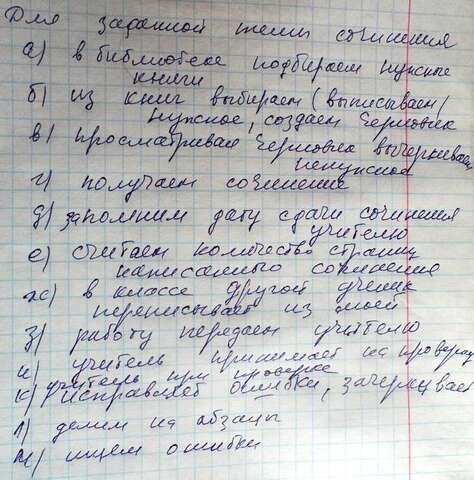 Для заданной темы сочинения
а) в библиотеке подбираем нужные
книги
б) из книг выбираем (выписываем)
нужное, создаем черновик
в) просматривая черновик вычеркиваем
ненужное
г) получаем сочинение
д) запомним дату сдачи сочинения
учителю
е) считаем количество страниц
написанного сочинения
ж) в классе другой ученик
переписывает из моей
з) работу передаем учителю
и) учитель принимает на проверку
к) учитель при проверке
исправляет ошибки, зачеркивает
л) делим на абзацы
м) ищем ошибки